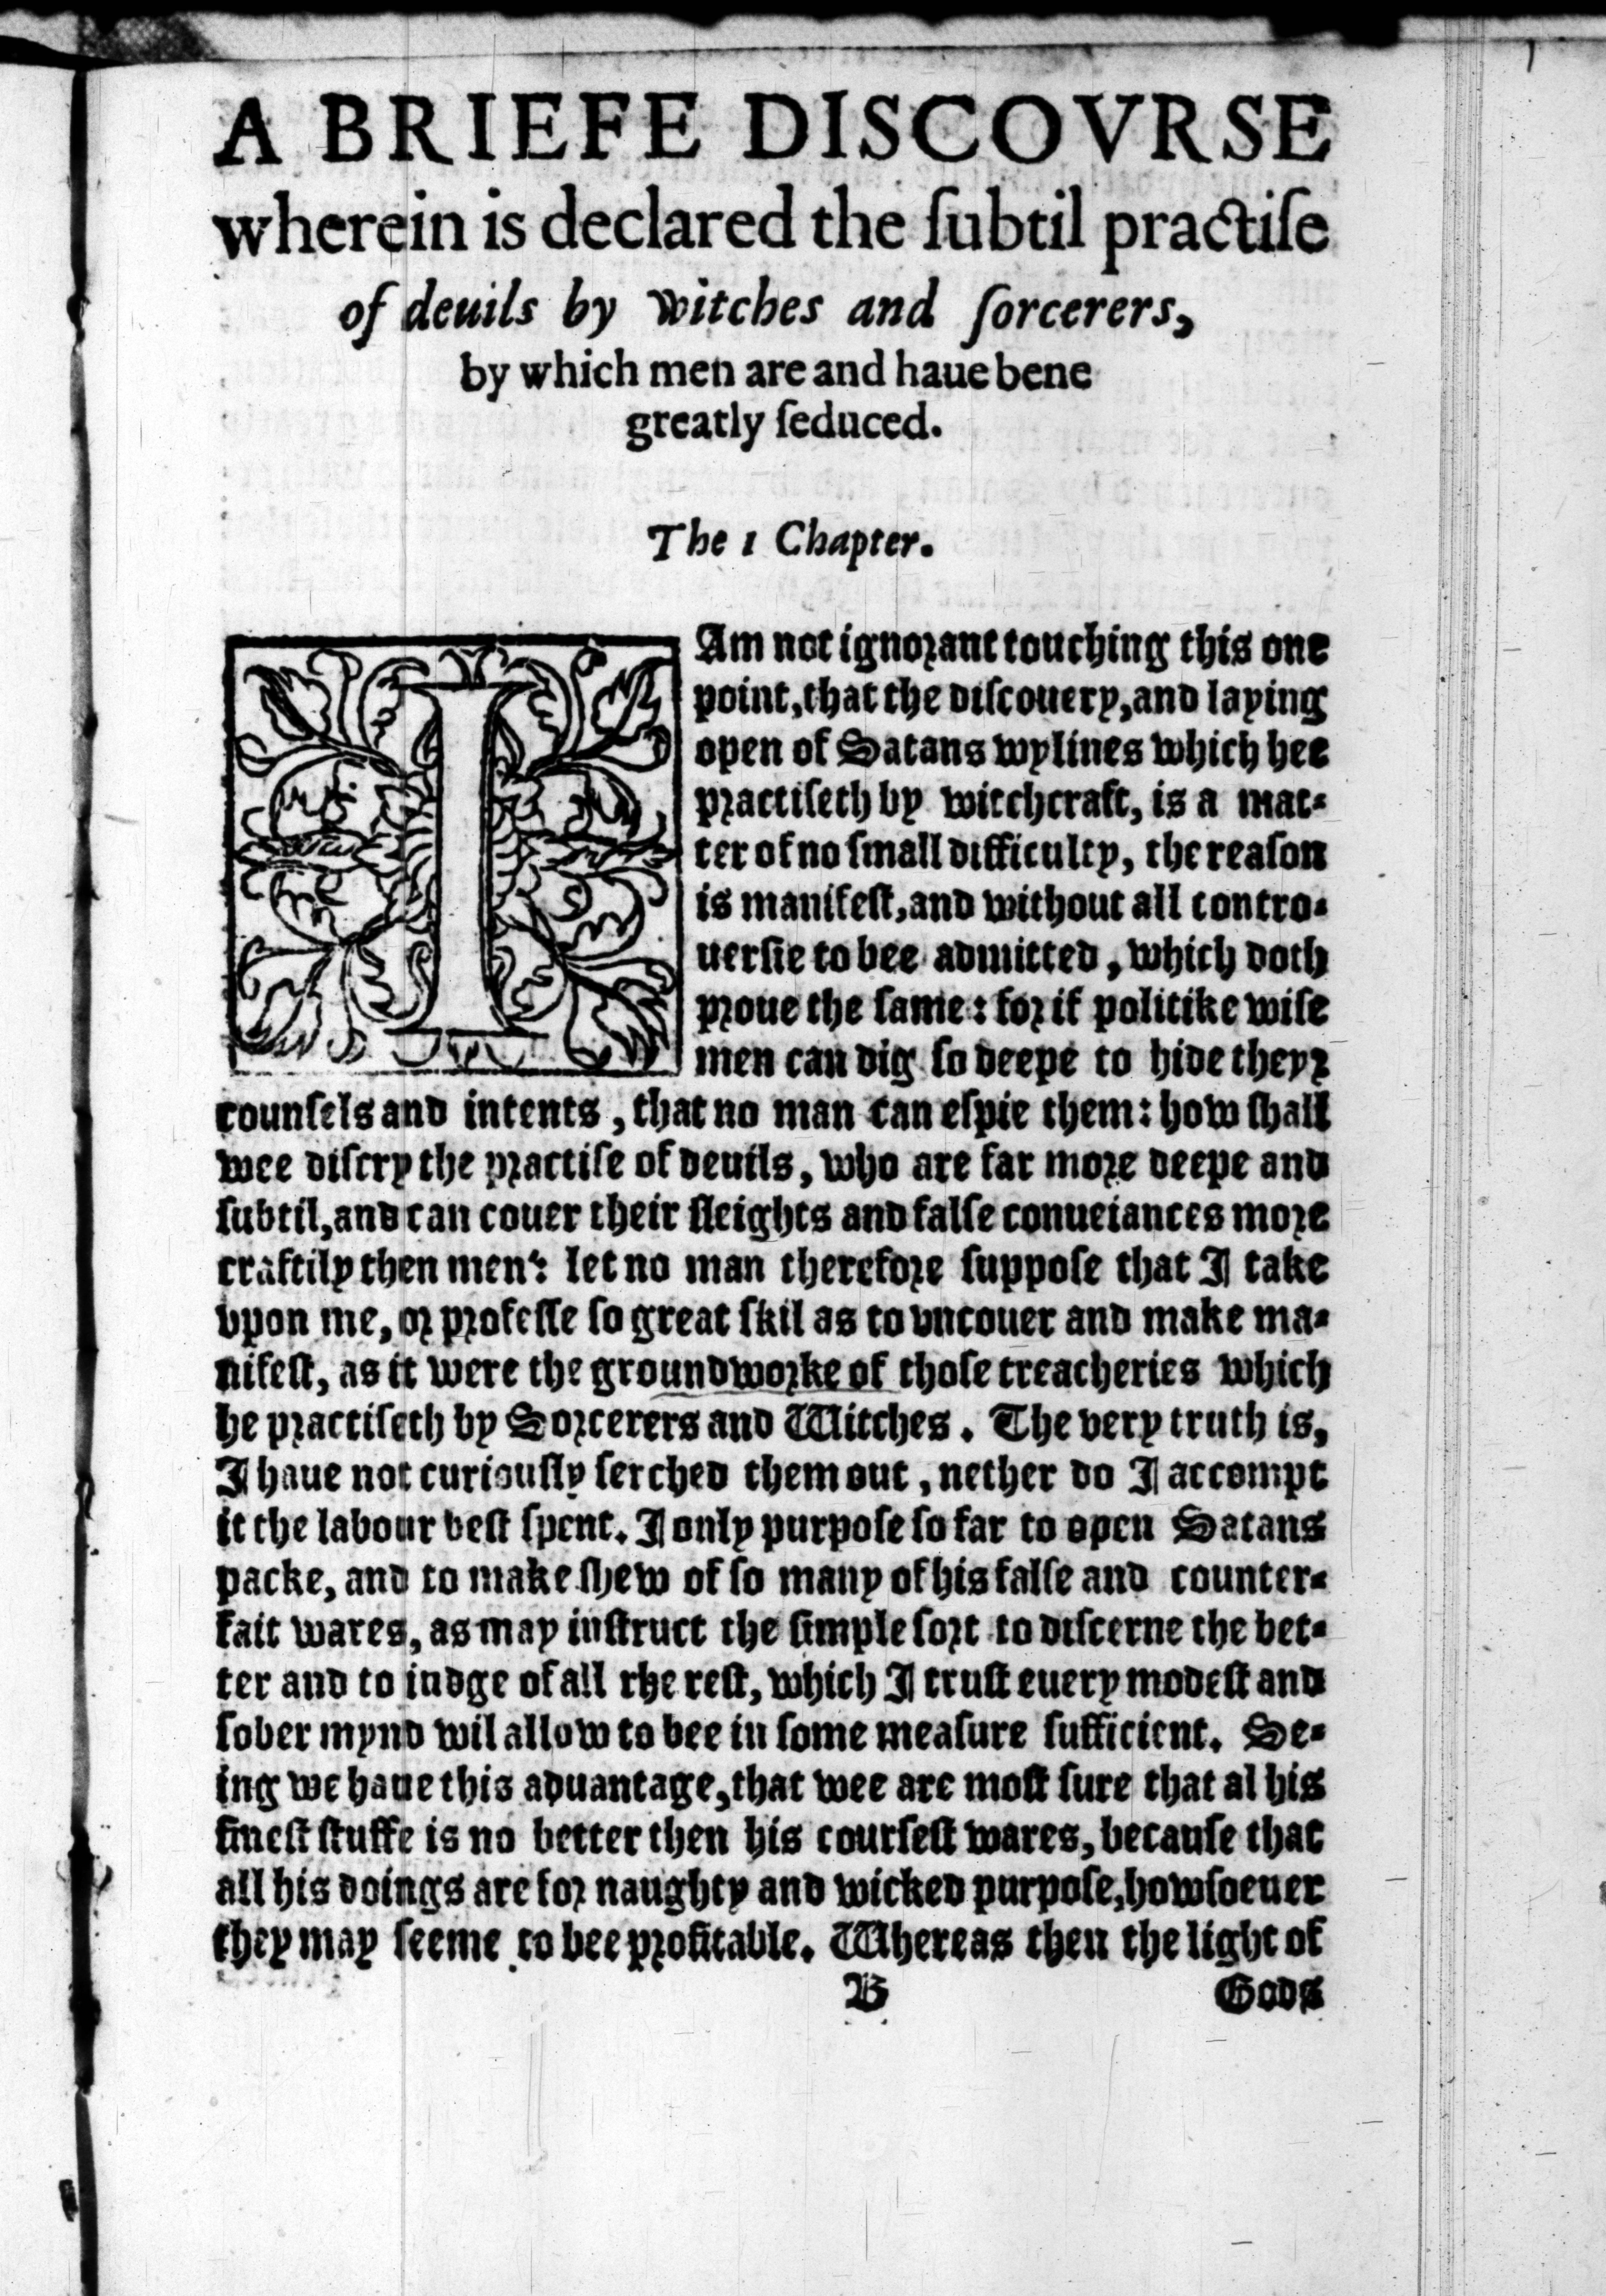 A BRIEFE DISCOVRSE
wherein is declared the ſubtil practiſe
of deuils by witches and ſorcerers,
by which men are and haue bene
greatly ſeduced.
The 1 Chapter.
I Am not ignorant touching this one
point, that the diſcouery, and laying
open of Satans wylines which hee
practiſeth by witchcraft, is a mat-
ter of no ſmall difficulty, the reaſon
is manifeſt, and without all contro-
uerſie to bee admitted, which doth
proue the ſame: for if politike wiſe
men can dig ſo deepe to hide theyr
counſels and intents, that no man can eſpie them: how ſhall
wee diſcry the practiſe of deuils, who are far more deepe and
ſubtil, and can couer their ſleights and falſe conueiances more
craftily then men: let no man therefore ſuppoſe that I take
vpon me, or profeſſe ſo great ſkil as to vncouer and make ma-
nifeſt, as it were the groundworke of thoſe treacheries which
he practiſeth by Sorcerers and Witches. The very truth is,
I haue not curiouſly ſerched them out, nether do I accompt
it the labour beſt ſpent. I only purpoſe ſo far to open Satans
packe, and to make ſhew of ſo many of his falſe and counter-
fait wares, as may inſtruct the ſimple ſort to diſcerne the bet-
ter and to iudge of all rhe reſt, which I truſt euery modeſt and
ſober mynd wil allow to bee in ſome meaſure ſufficient. Se-
ing we haue this aduantage, that wee are moſt ſure that al his
fineſt ſtuffe is no better then his courſeſt wares, becauſe that
all his doings are for naughty and wicked purpoſe, howſoeuer
they may ſeeme to bee profitable. Whereas then the light of
B Gods